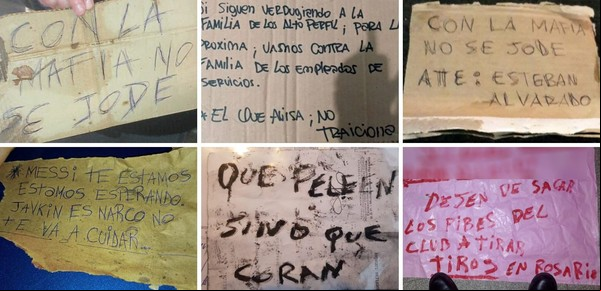 CON LA
MAFIA NO
SE JODE
Si SiGUEN VERDUGIENDO A LA
FAMILIA DE LOS ALTO PERFIL; PARA LA
PROXIMA; VAMOS CONTRA LA
FAMILIA DE LOS EMPLEADOS DE
SERVICIOS.
* EL QUE AVISA; NO
TRAICIONA
CON LA MAFIA
NO SE JODE
ATTE: ESTEBAN
ALVARADO
* MESSI TE ESTAMOS
ESTAMOS ESPERANDO.
JAVKIN ES NARCO NO
TE VA A CUIDAR...
QUE PELEEN
SINO QUE
CORAN
DEJEN DE SACAR
LOS PIBES DEL
CLUB A TIRAR
TIROS EN ROSARIO